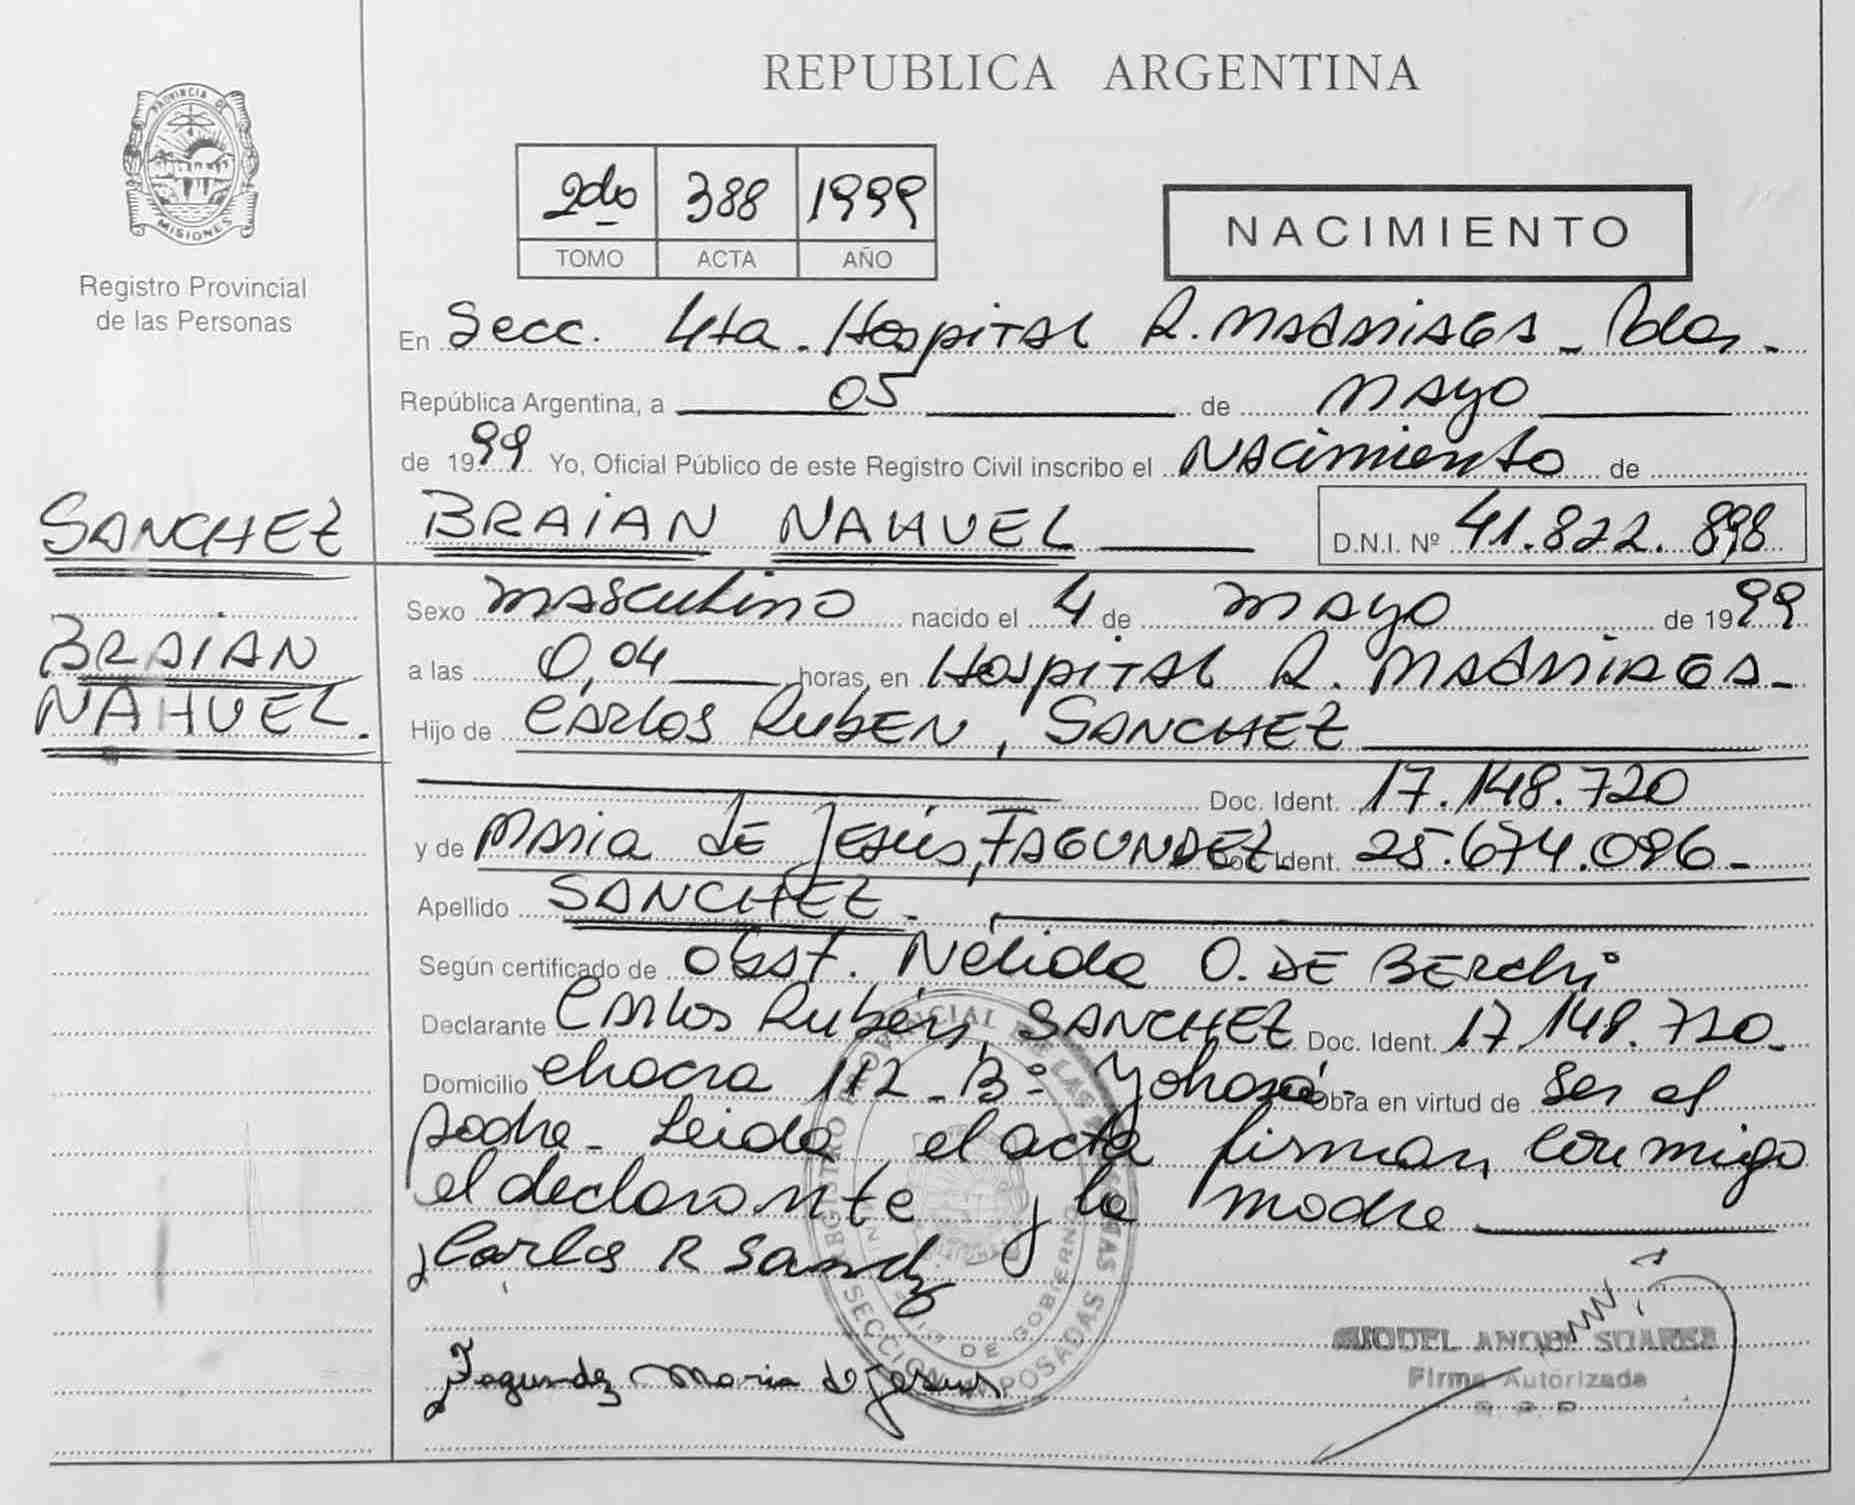 REPUBLICA ARGENTINA
PROVINCIA DE
MISIONES
Registro Provincial
de las Personas
2do 388 1999
TOMO ACTA AÑO
NACIMIENTO
En Secc. 4ta. Hospital R. Madariaga - Pdas -
República Argentina, a 05 de Mayo
de 1999 Yo, Oficial Público de este Registro Civil inscribo el Nacimiento de
SANCHEZ BRAIAN NAHUEL D.N.I. Nº 41.822.898
BRAIAN
NAHUEL.
Sexo masculino nacido el 4 de mayo de 1999
a las 0,04 horas, en Hospital R. Madariaga -
Hijo de Carlos Ruben, SANCHEZ
Doc. Ident. 17.148.720
y de Maria de Jesús, FAGUNDEZ Doc. Ident. 25.674.096 -
Apellido SANCHEZ -
Según certificado de Obst. Nélida O. DE Berchi
Declarante Carlos Rubén, SANCHEZ Doc. Ident. 17.148.720 -
Domicilio chacra 112 - Bº Yohasá - Obra en virtud de ser el
padre - Leida el acta firman conmigo
el declarante y la madre
Carlos R Sanchz
Fagundez Maria de Jesus
REGISTRO PROVINCIAL DE LAS PERSONAS
DE GOBIERNO
SECCION POSADAS
MIGUEL ANGEL SUAREZ
Firma Autorizada
R. P. P.